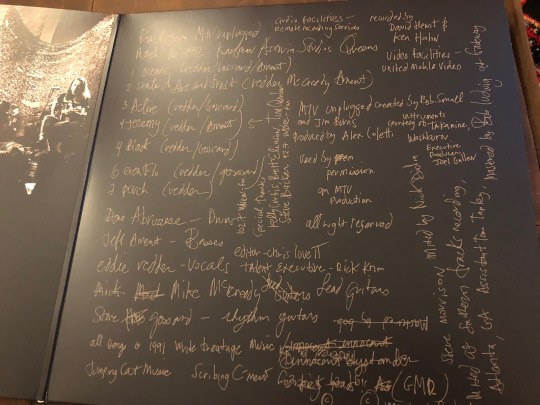 MTV unplugged
Kaufman Astoria Studios Queens
oceans (vedder/gossard/Ament)
2 State of love and trust (vedder McCready Ament)
3 Alive (vedder/gossard)
Jeremy (vedder/Ament)
4 Black (vedder/gossard)
6 evenFlo (vedder/gossard)
7 porch (vedder)
Dave Abruzzese - Drums
Jeff Ament - Basses
eddie vedder - vocals
Mike McCready lead guitars
Stone gossard - rhythm guitars
all songs © 1991 write treatage Music
innocent bystander
Jumping Cat Music Scribing C-ment (GMR)
audio facilities -
remote recording services
recorded by
David Hewitt &
Ken Hahn
Video facilities -
united mobile video
MTV unplugged created by Bob Small
and Jim Burns
produced by Alex Coletti
instruments
courtesy of Takamine,
Washburn
Executive
Producer
Joel Gallen
used by
permission
an MTV
Production
all right reserved
editor - chris love II
talent executive - Rick Krim
special thanks
mixed by Nick DiDia
at southern tracks recording,
Atlanta, GA Assistant Tom Tapley, mastered by Bob Ludwig at Gateway